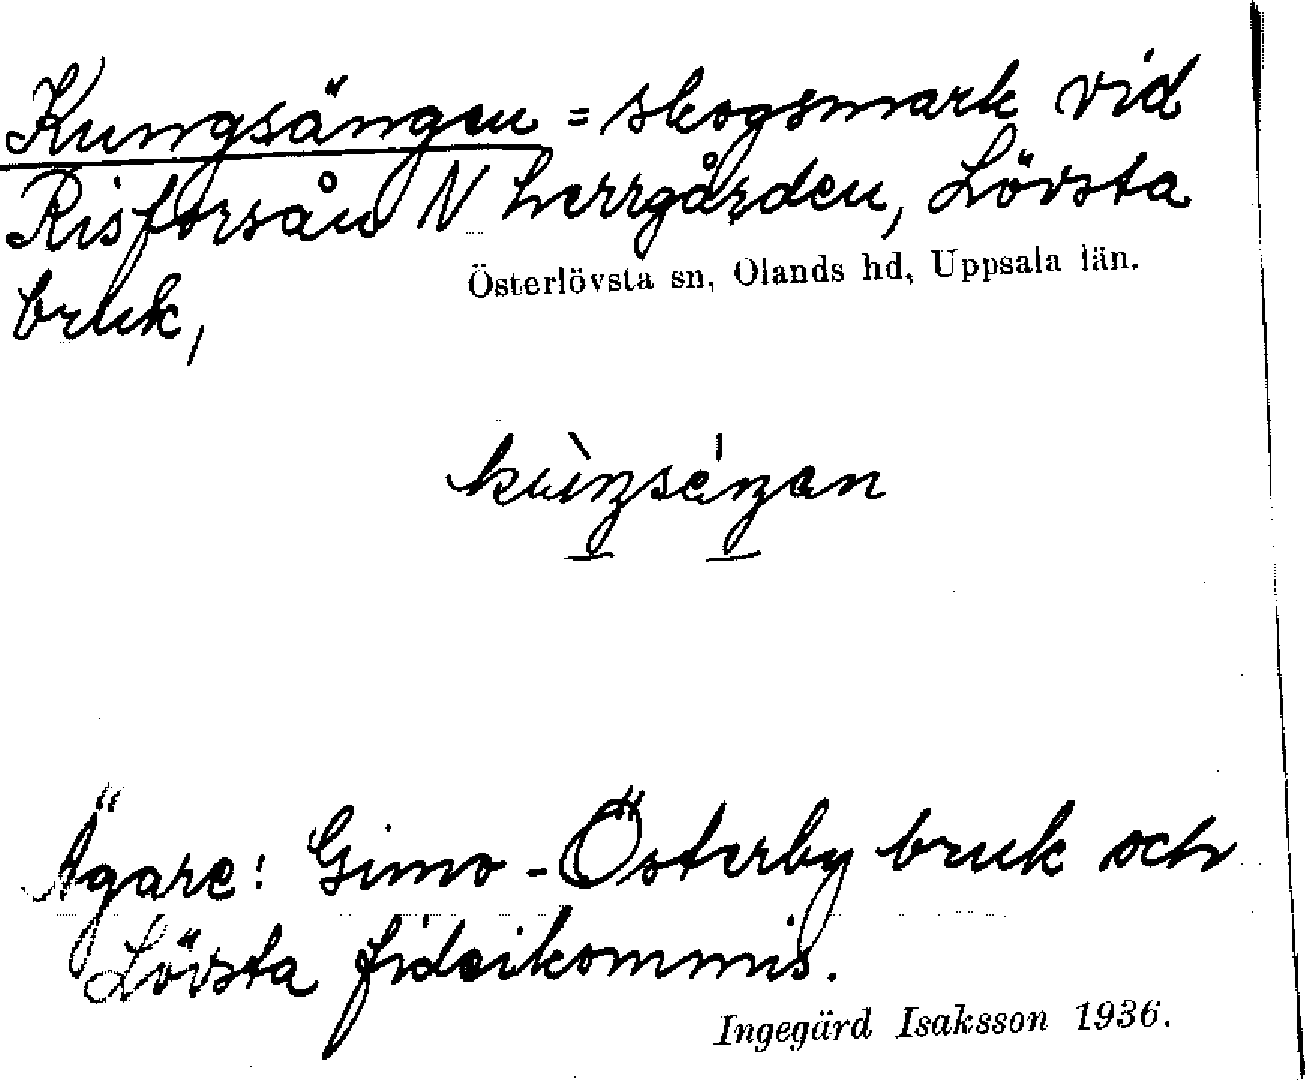 Kungsängen = skogsmark vid
Risforsån N herrgården, Lövsta
Österlövsta sn, Olands hd, Uppsala län.
bruk,
kùŋséŋan
Ägare: Gimo-Österby bruk och
Lövsta fideikommis.
Ingegärd Isaksson 1936.